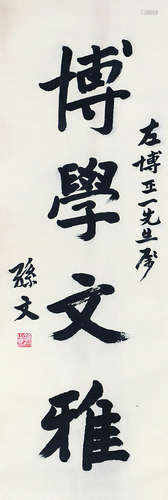 左博正一先生属
博學文雅
孫文